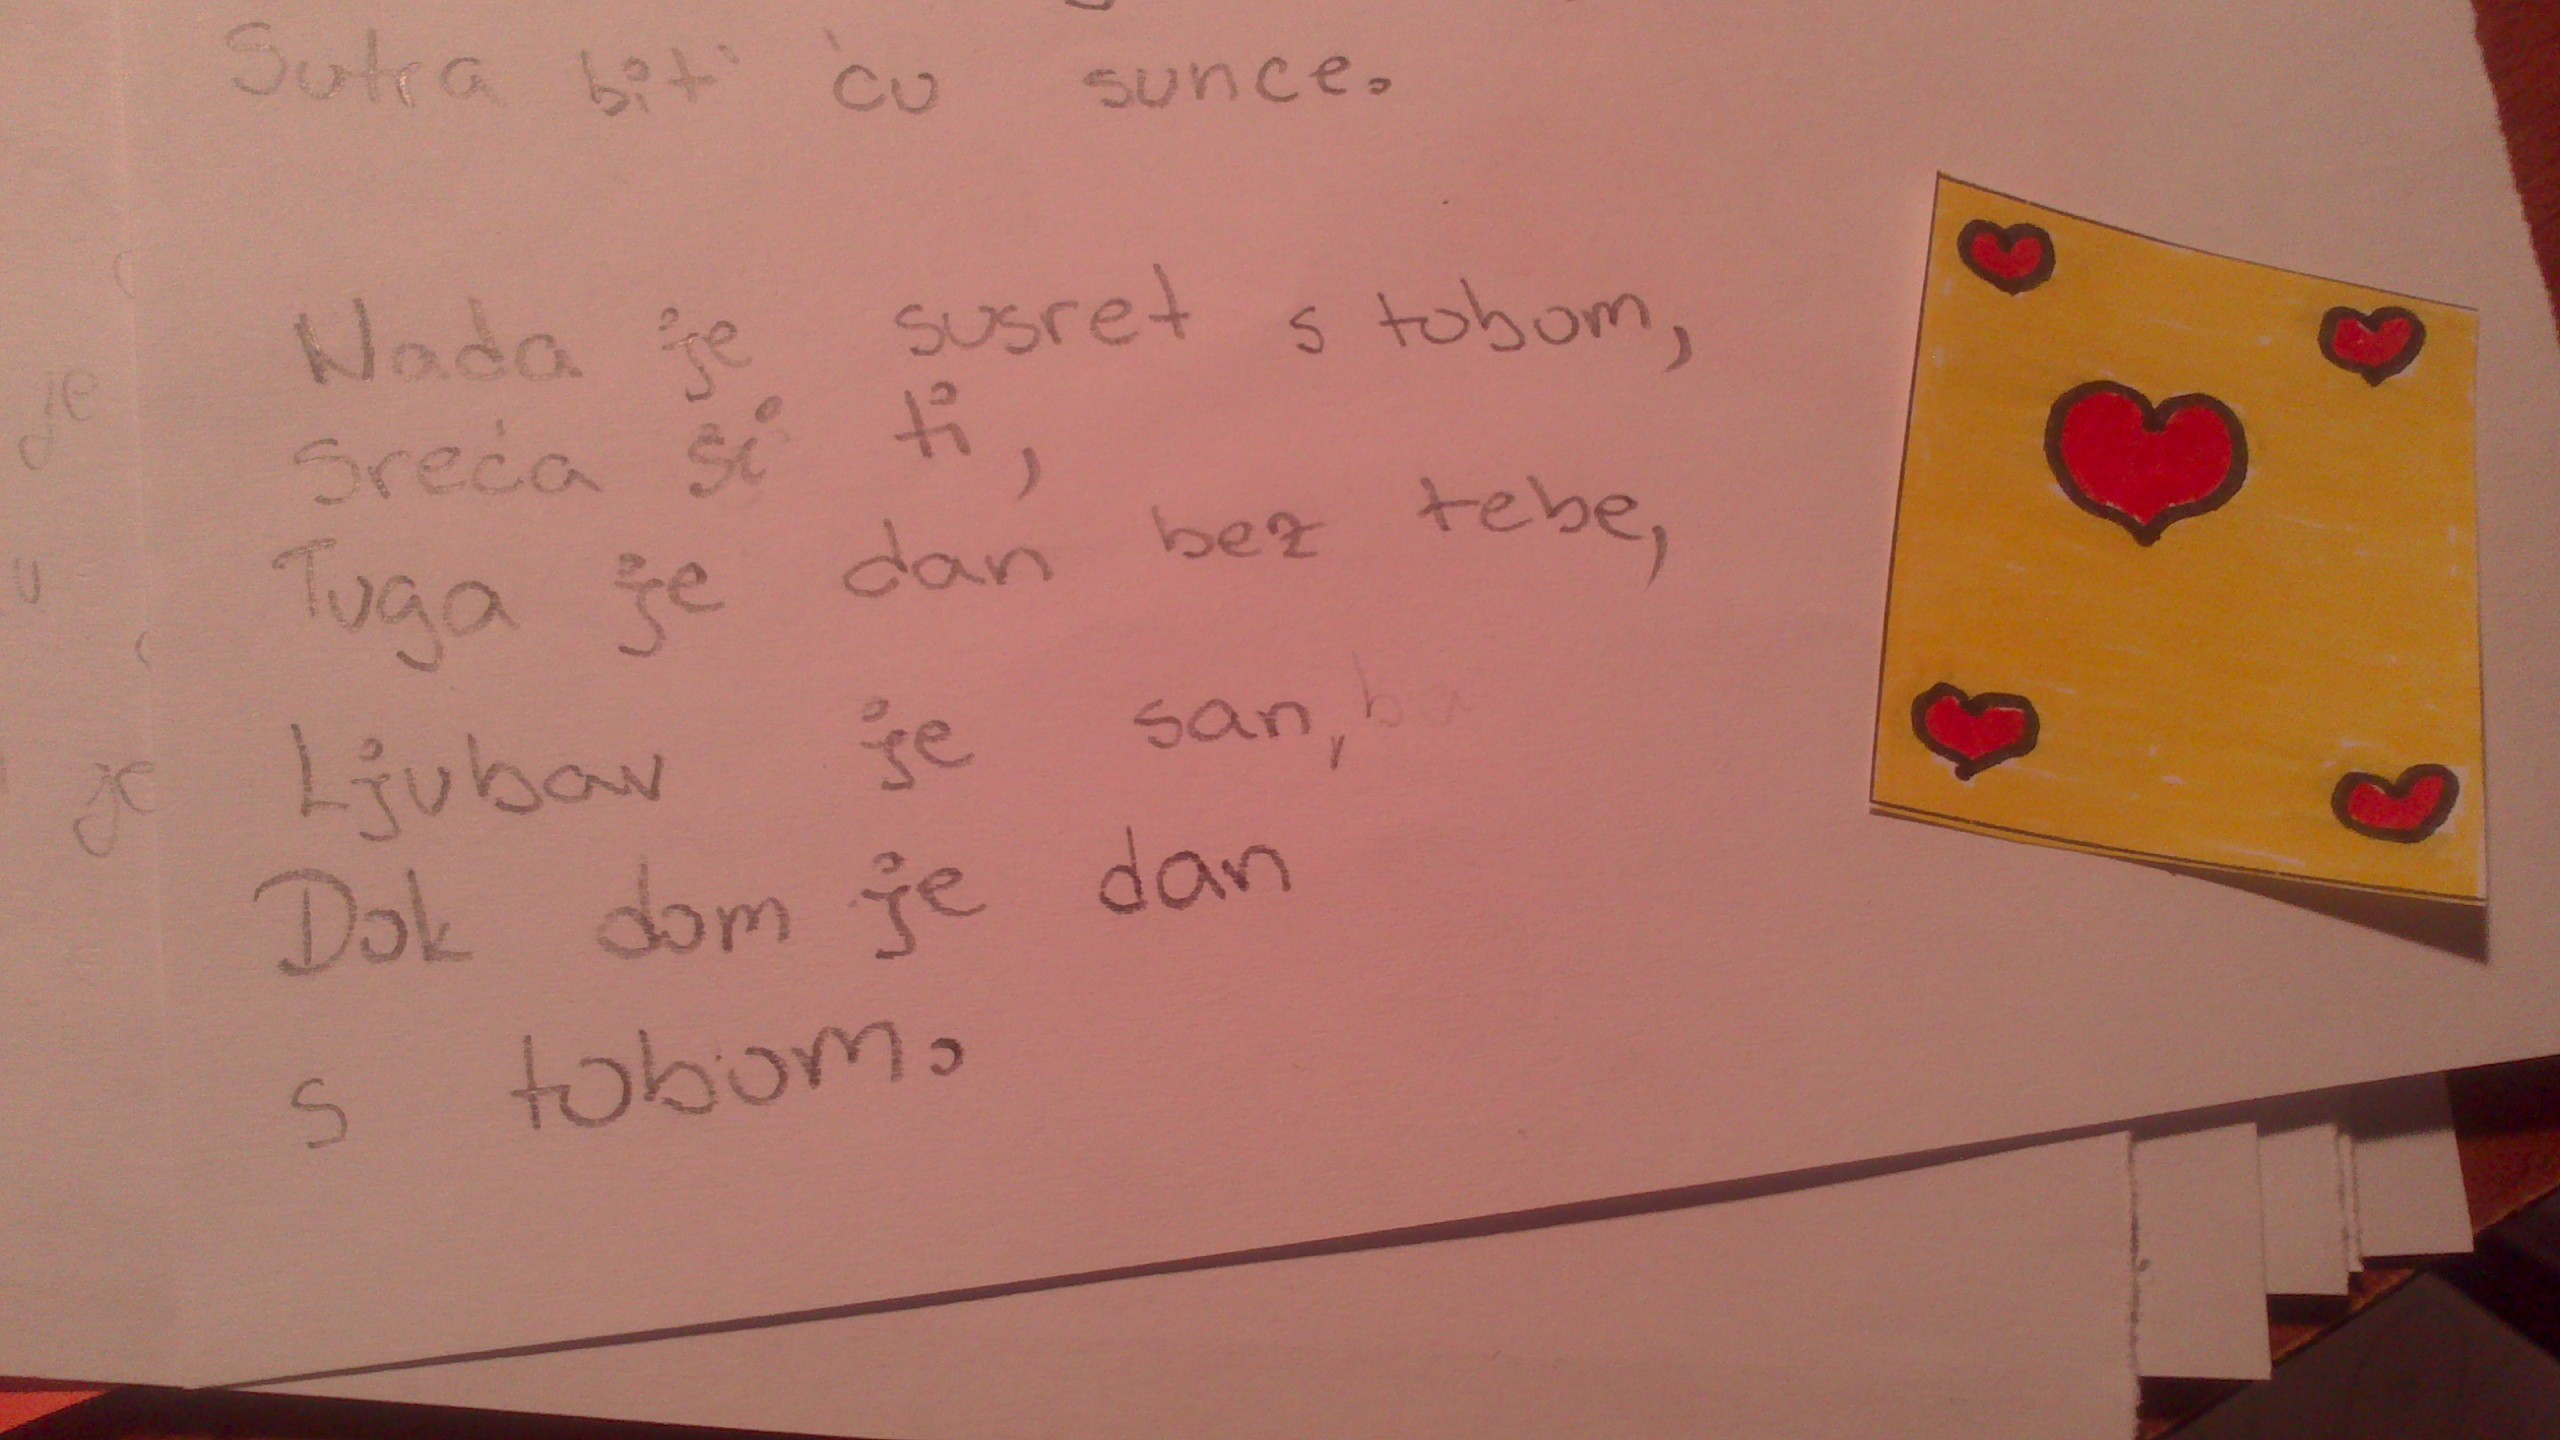 Sutra bit' ću sunce.
Nada je susret s tobom,
sreća si ti,
Tuga je dan bez tebe,
Ljubav je san,
Dok dom je dan
s tobom.
je
u
je